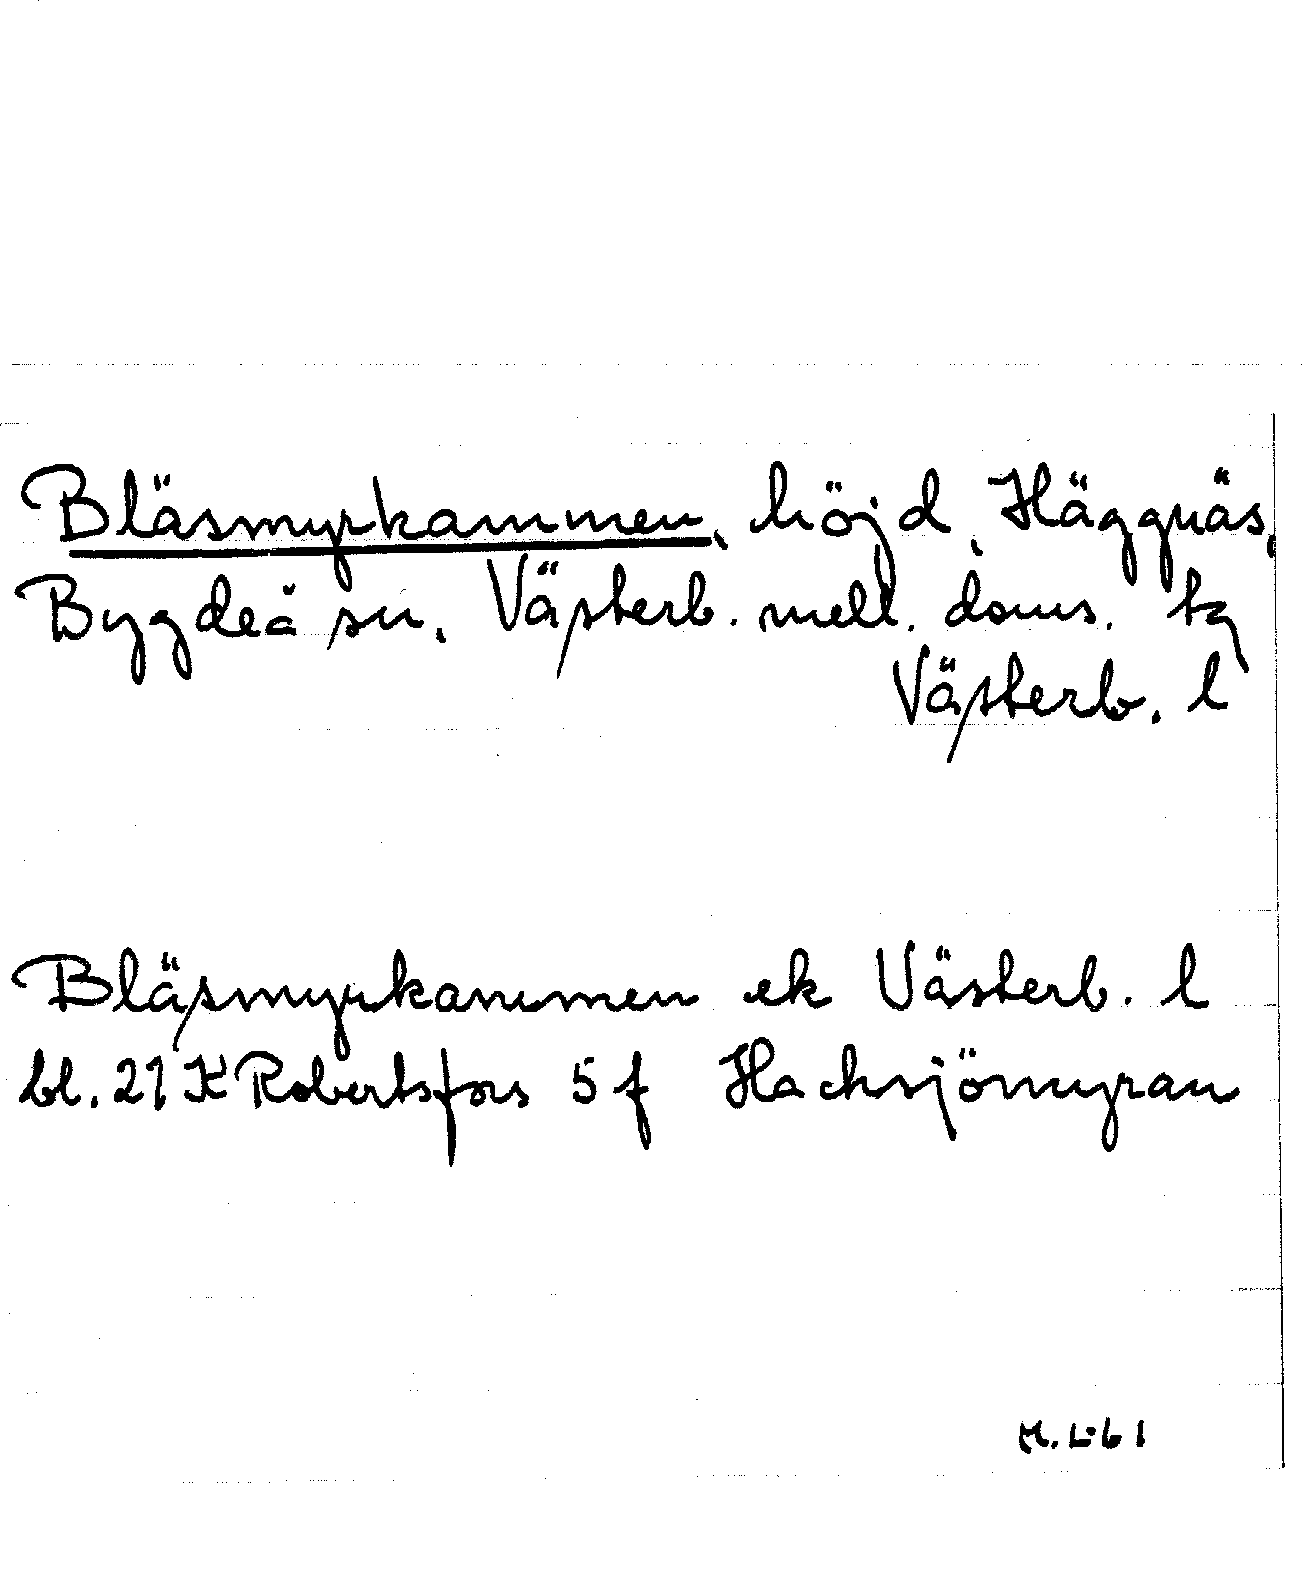 Bläsmyrkammen, höjd, Häggnäs,
Bygdeå sn, Västerb. mell. doms. tg
Västerb. l
Bläsmyrkammen ek Västerb. l
bl. 21 K Robertsfors 5 f Hachsjömyran
M. L-61